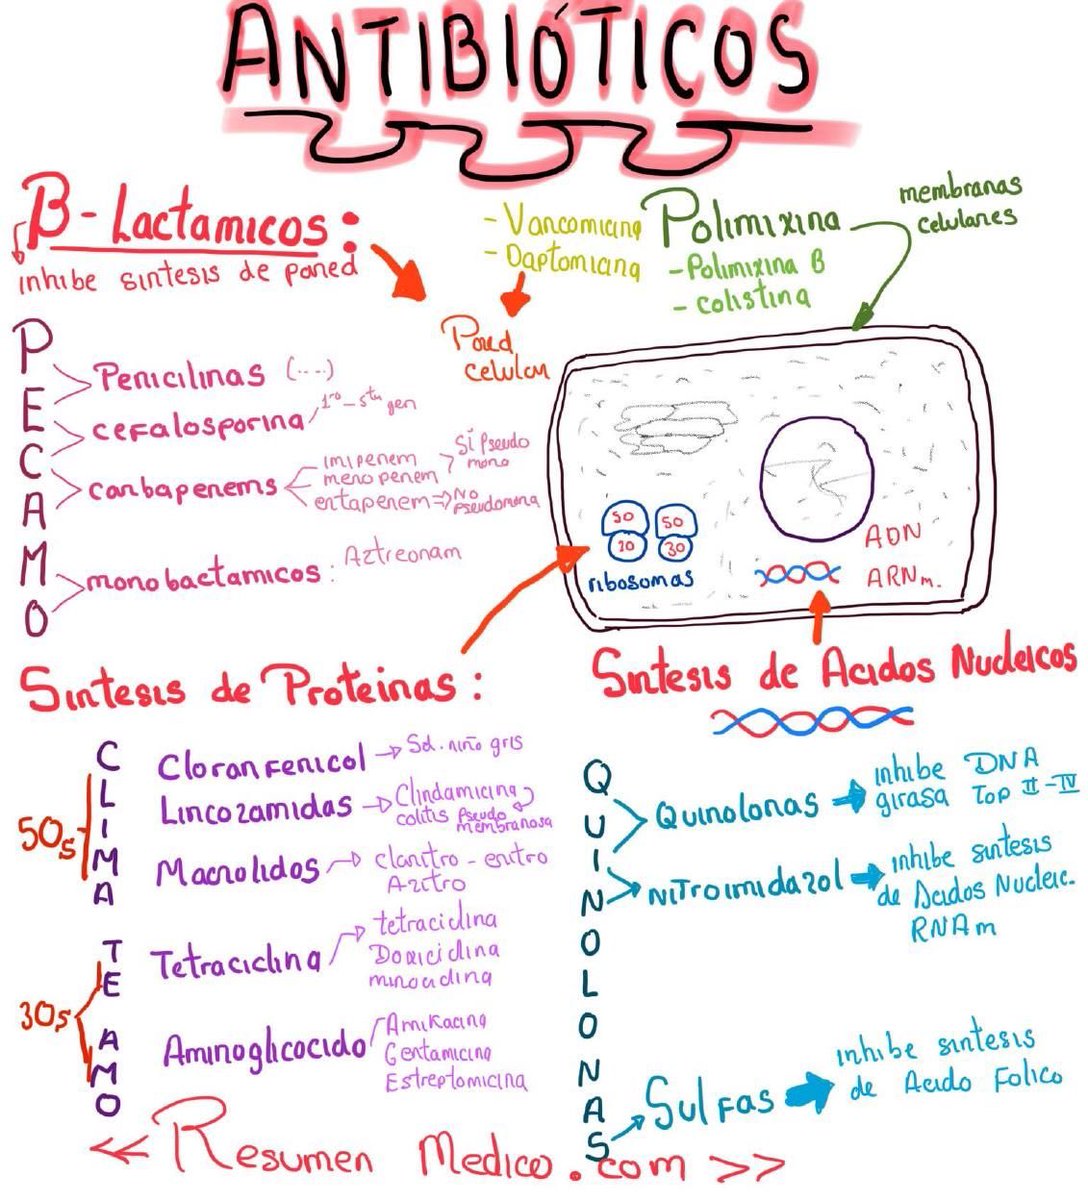 ANTIBIÓTICOS
B-Lactamicos:
inhibe sintesis de pared
- Vancomicina
- Daptomicina
Polimixina
- Polimixina B
- colistina
membranas
celulares
Pared
celular
PECAMO
Penicilinas (...)
cefalosporina / 1ra - 5ta gen
carbapenems
imipenem
meropenem
Si Pseudo
mono
ertapenem => No
Pseudomona
monobactamicos: Aztreonam
50 50
30 30
ribosomas
ADN
ARNm.
Sintesis de Proteinas:
Sintesis de Acidos Nucleicos
CLIMA TE AMO
50s
Cloranfenicol → Sd. niño gris
Lincozamidas → Clindamicina
colitis Pseudo
membranosa
Macrolidos → claritro - eritro
Azitro
30s
Tetraciclina → tetraciclina
Doxiciclina
minociclina
Aminoglicocido
Amikacina
Gentamicina
Estreptomicina
QUINOLONAS
Quinolonas → inhibe DNA
girasa Top II-IV
NiTroimidazol → inhibe sintesis
de Acidos Nucleic.
RNAm
Sulfas → inhibe sintesis
de Acido Folico
<< Resumen Medico.com >>